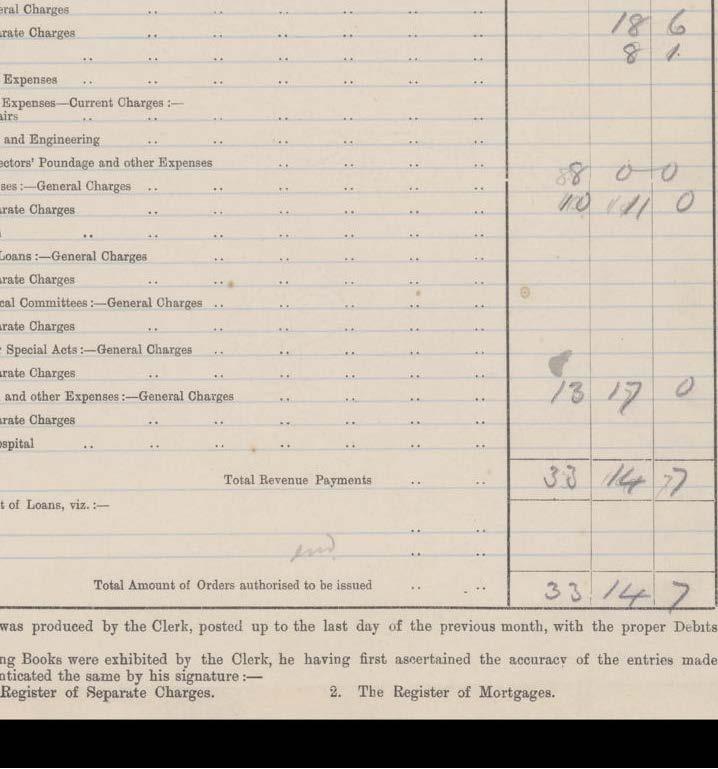 eral Charges .. .. .. .. .. ..
rate Charges .. .. .. .. .. .. 18 6
.. .. .. .. .. .. .. 8 1
Expenses .. .. .. .. .. .. ..
Expenses—Current Charges :—
airs .. .. .. .. .. ..
and Engineering .. .. .. .. .. ..
ectors' Poundage and other Expenses .. .. .. .. .. 8 0 0
ses :—General Charges .. .. .. .. .. ..
rate Charges .. .. .. .. .. .. 10 11 0
.. .. .. .. .. .. ..
Loans :—General Charges .. .. .. .. ..
rate Charges .. .. .. .. .. ..
cal Committees :—General Charges .. .. .. .. ..
rate Charges .. .. .. .. .. ..
Special Acts :—General Charges .. .. .. .. ..
rate Charges .. .. .. .. .. ..
and other Expenses :—General Charges .. .. .. .. 13 17 0
rate Charges .. .. .. .. .. ..
ospital .. .. .. .. .. .. ..
Total Revenue Payments .. .. 33 14 7
t of Loans, viz. :—
.. ..
end .. ..
Total Amount of Orders authorised to be issued .. .. 33 14 7
was produced by the Clerk, posted up to the last day of the previous month, with the proper Debits
ng Books were exhibited by the Clerk, he having first ascertained the accuracy of the entries made
nticated the same by his signature :—
Register of Separate Charges. 2. The Register of Mortgages.